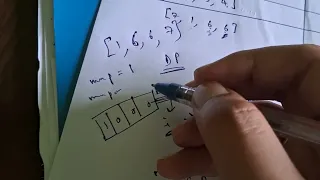 [7, 1, 6, 6]
[1, 6, 6, 7]
map = 1
DP
map =
1 0 0 0
i